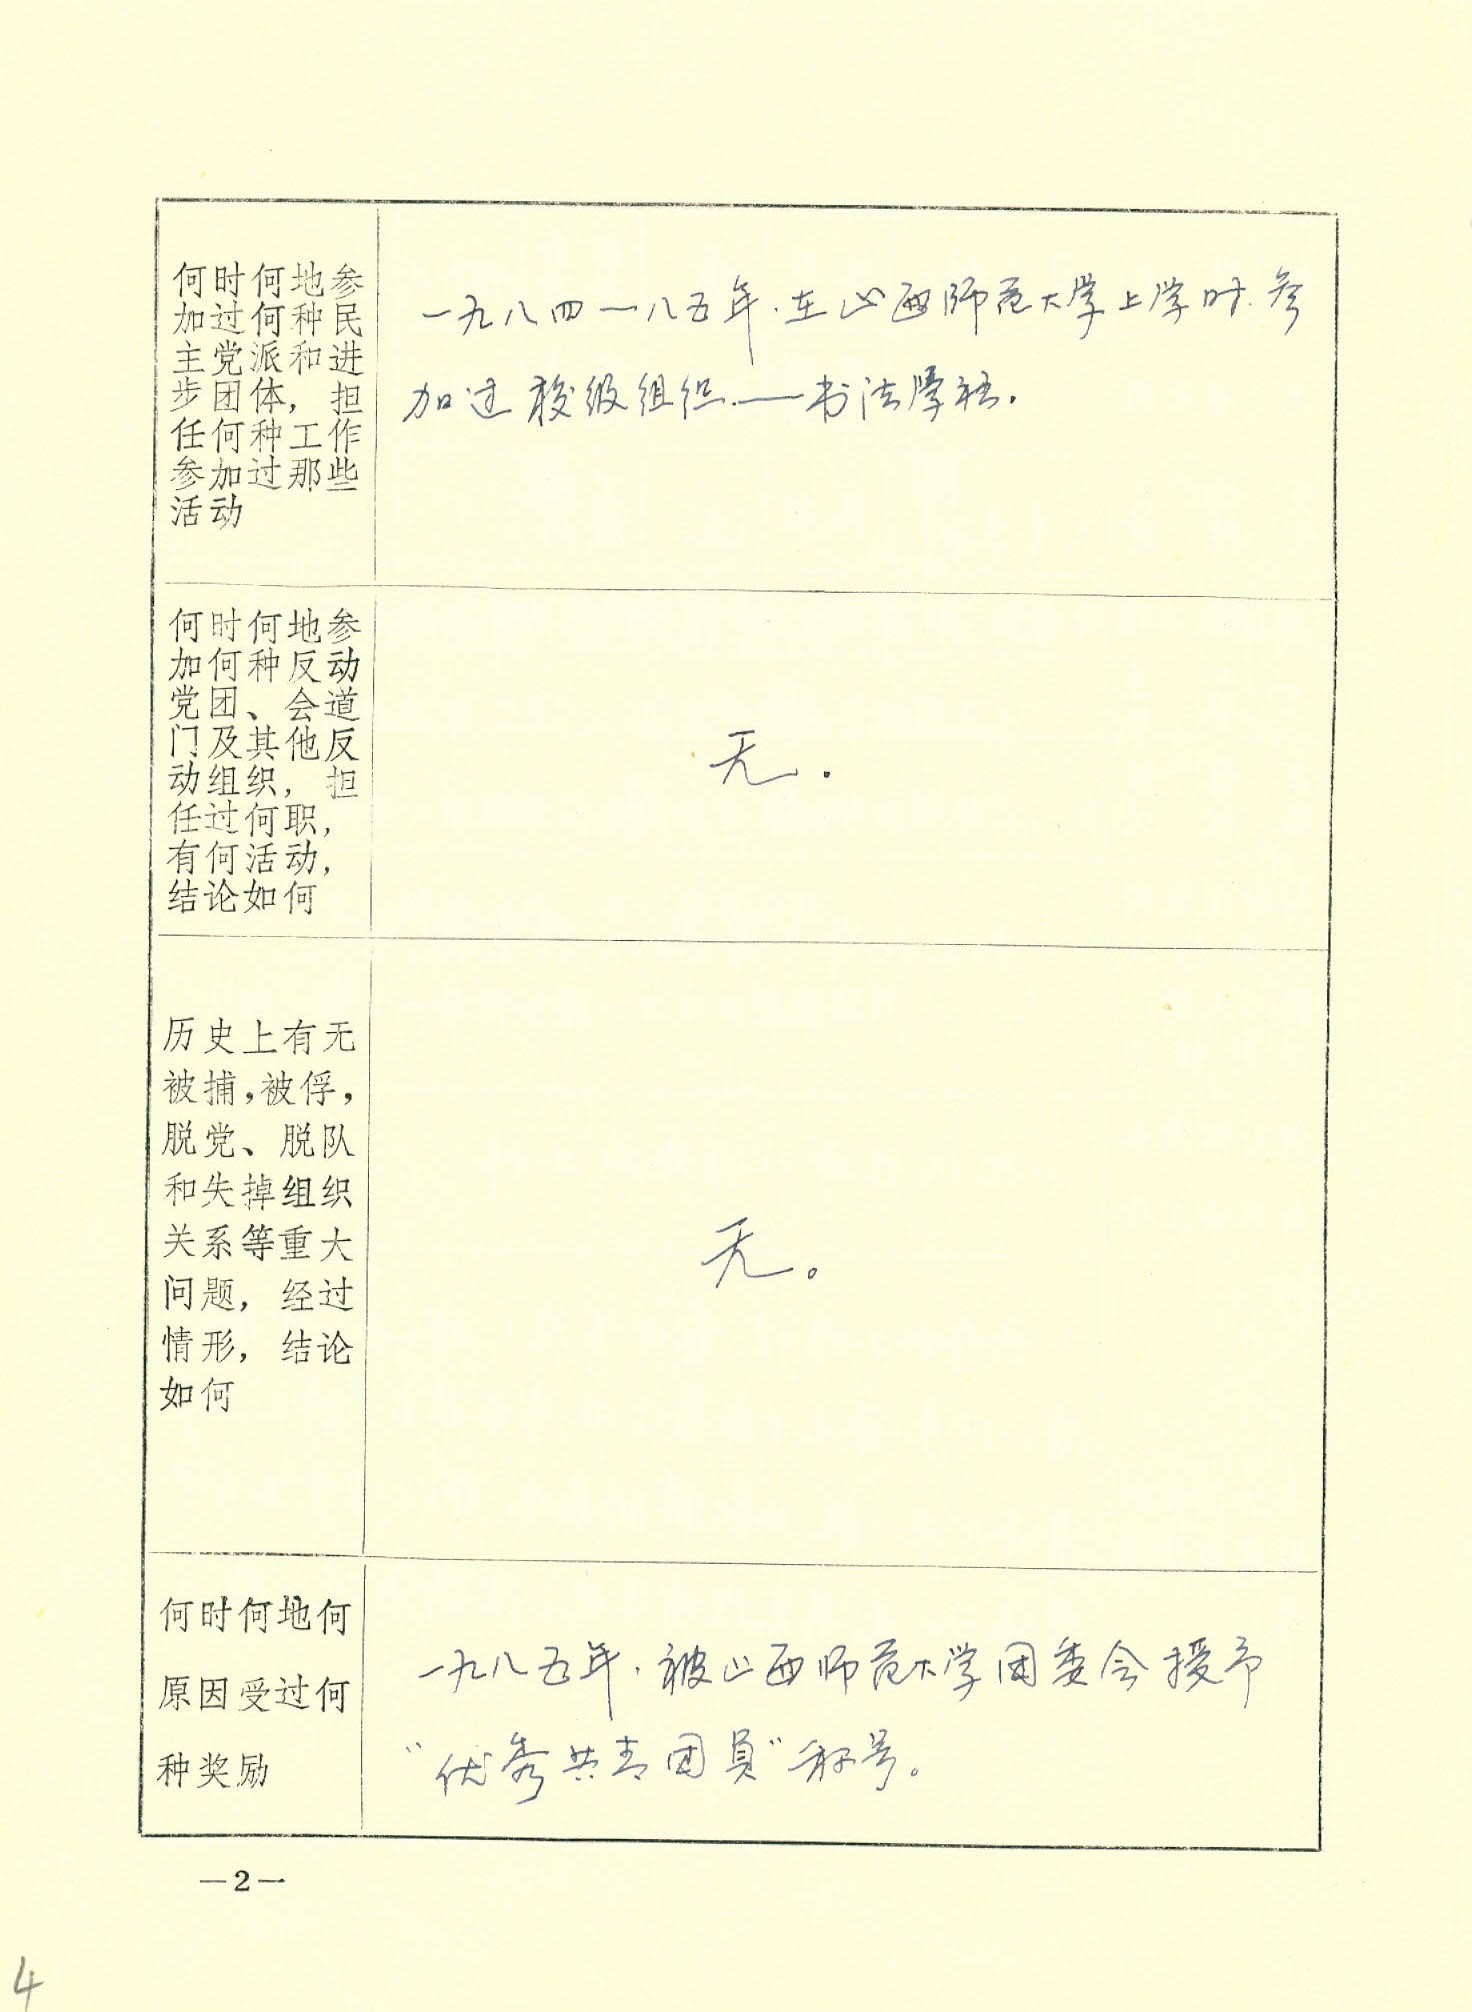 何时何地参
加过何种民
主党派和进
步团体，担
任何种工作
参加过那些
活动
一九八四一八五年.在山西师范大学上学时.参
加过校级组织.——书法学社.
何时何地参
加何种反动
党团、会道
门及其他反
动组织，担
任过何职，
有何活动，
结论如何
无.
历史上有无
被捕，被俘，
脱党、脱队
和失掉组织
关系等重大
问题，经过
情形，结论
如何
无。
何时何地何
原因受过何
种奖励
一九八五年.被山西师范大学团委会授予
“优秀共青团员”称号。
—2—
4